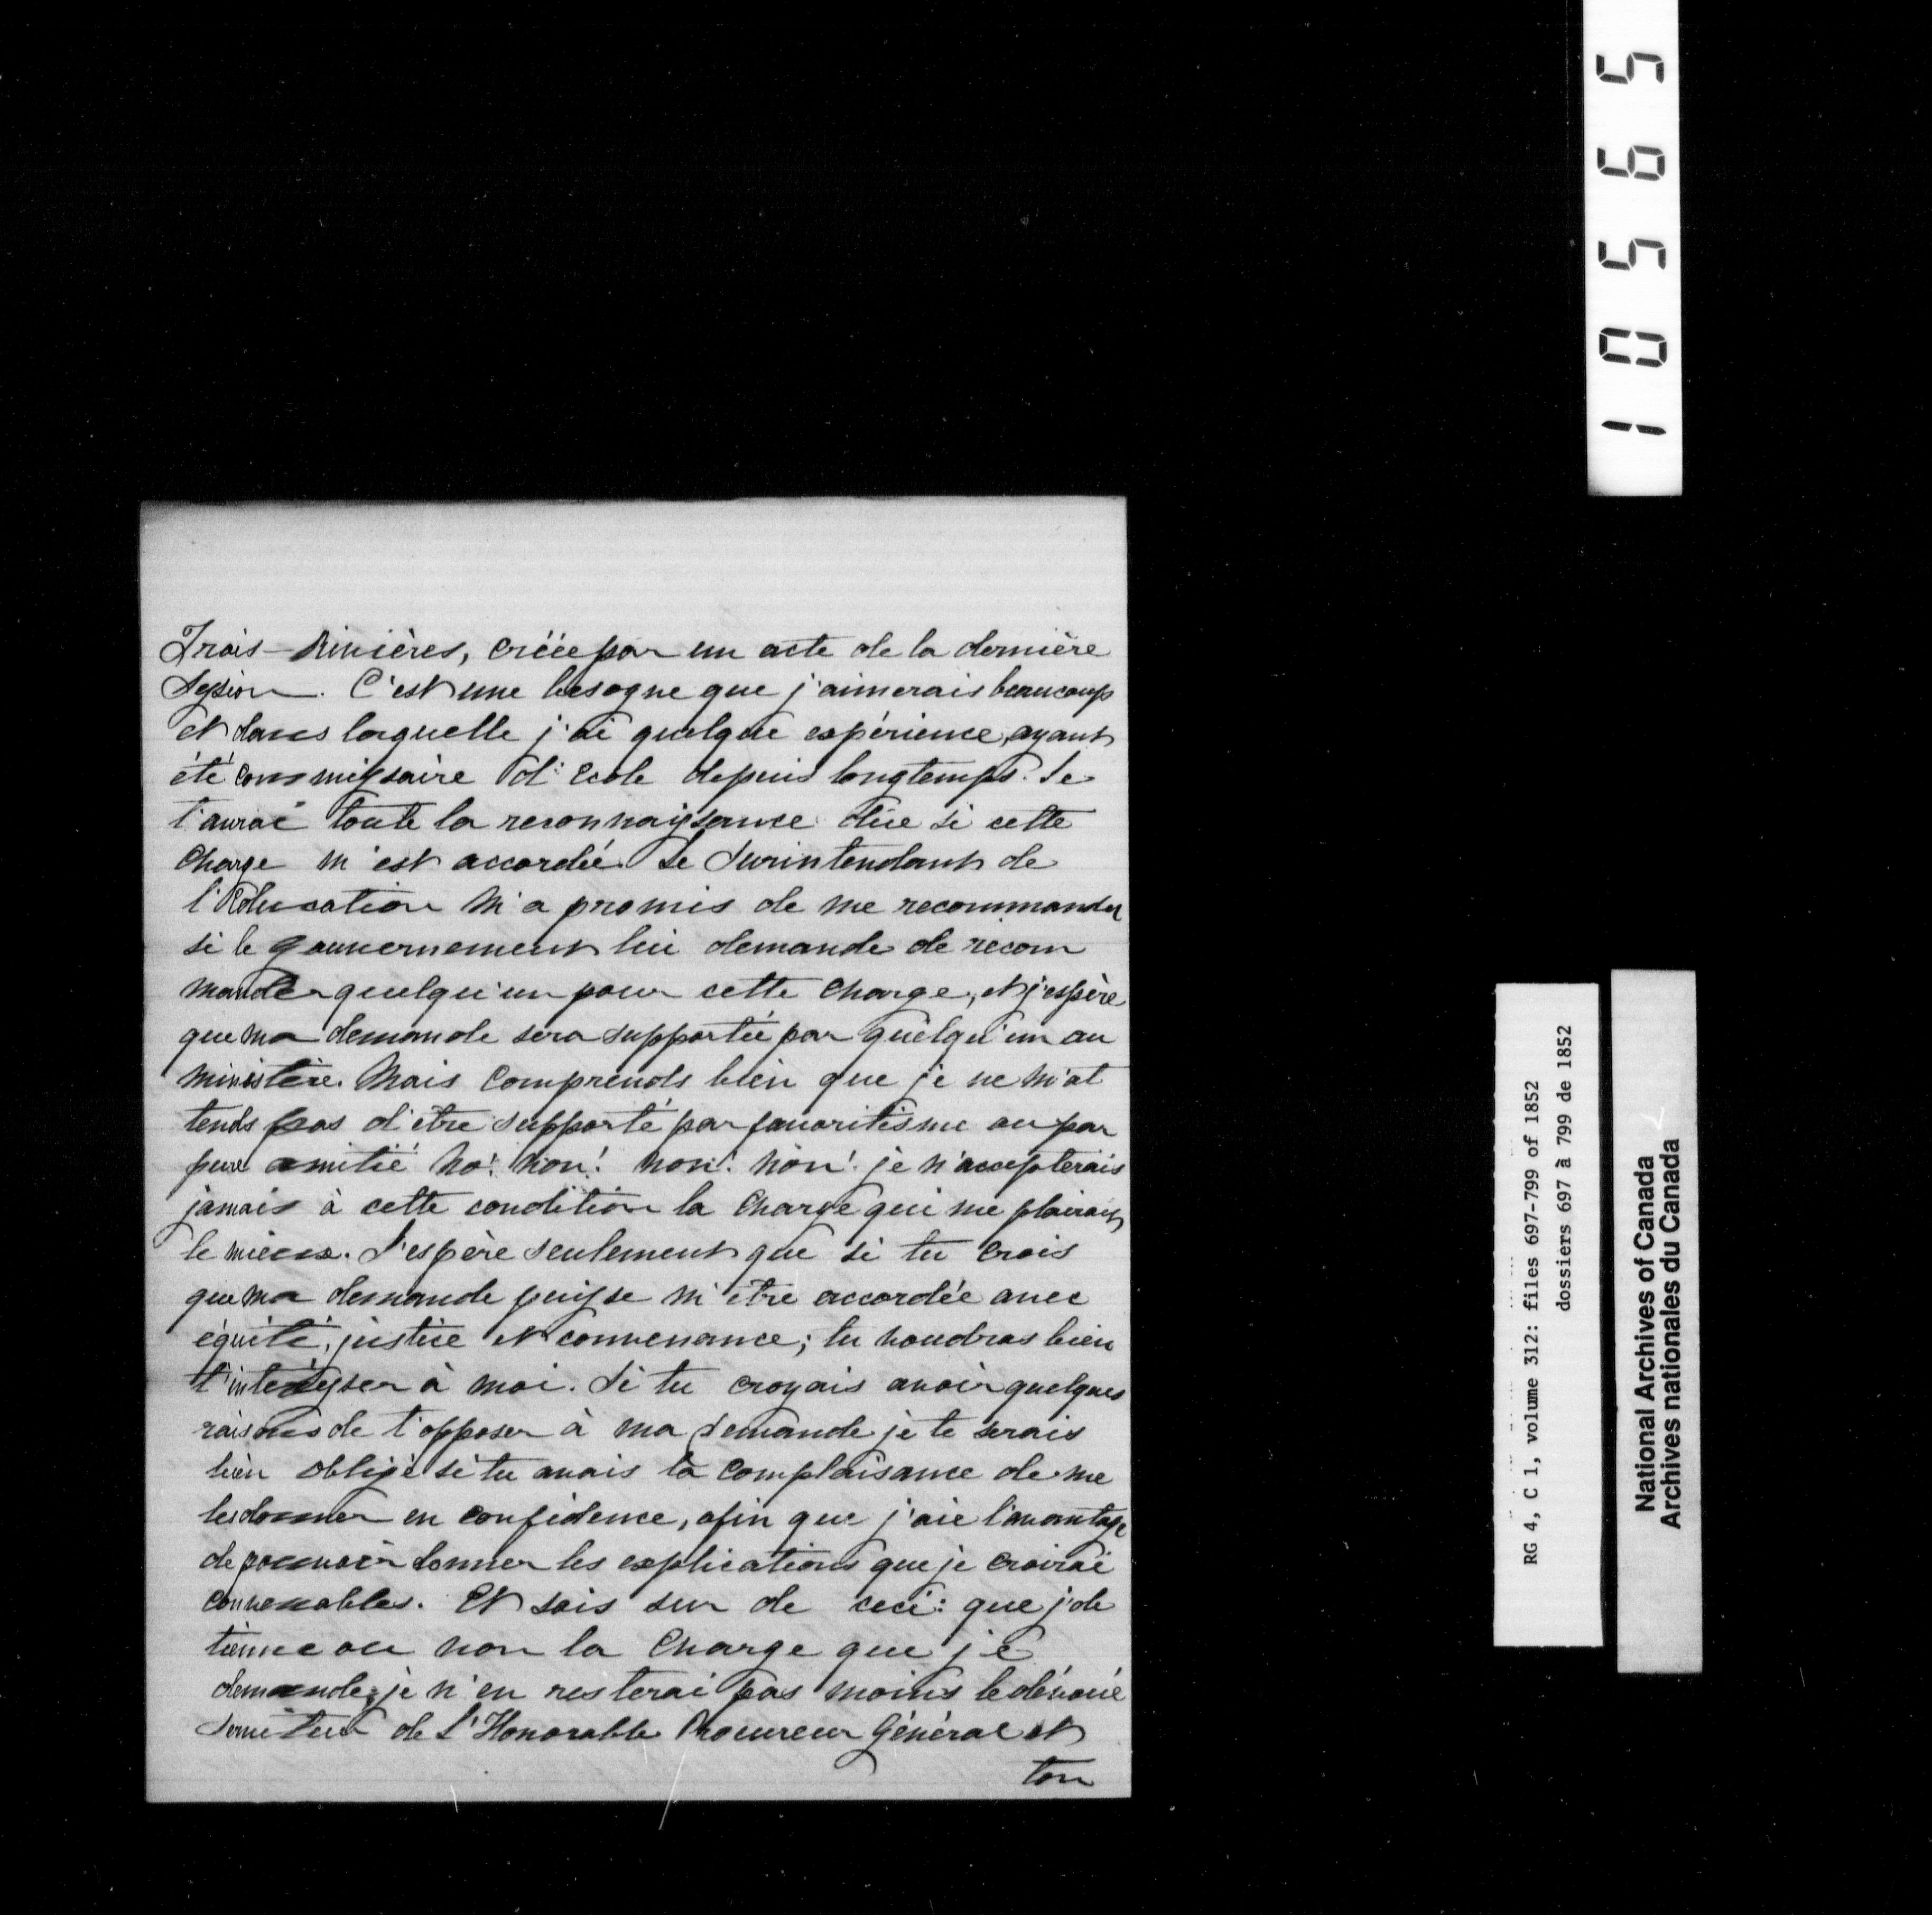 Trois-Rivières, créée par un acte de la dernière
Session. C'est une besogne que j'aimerais beaucoup
et dans laquelle j'ai quelque expérience, ayant
été commissaire d'école depuis longtemps. Je
t'aurai toute la reconnaissance due si cette
charge m'est accordée. Le Surintendant de
l'Education m'a promis de me recommander
si le gouvernement lui demande de recom
mander quelqu'un pour cette charge, et j'espère
que ma demande sera supportée par quelqu'un au
ministère. Mais comprends bien que je ne m'at
tends pas d'être supporté par favoritisme ou par
pure amitié no! non! non! non! je n'accepterais
jamais à cette condition la charge qui me plairait
le mieux. J'espère seulement que si tu crois
que ma demande puisse m'être accordée avec
équité, justice et convenance; tu voudras bien
t'intéresser à moi. Si tu croyais avoir quelques
raisons de t'opposer à ma demande je te serais
bien obligé si tu avais la complaisance de me
les donner en confidence, afin que j'aie l'avantage
de pouvoir donner les explications que je croirai
convenables. Et sois sur de ceci: que j'ob
tienne ou non la charge que je
demande, je n'en resterai pas moins le dévoué
serviteur de l'Honorable Procureur Général et
ton
10565
RG 4, C 1, volume 312: files 697-799 of 1852
dossiers 697 à 799 de 1852
National Archives of Canada
Archives nationales du Canada